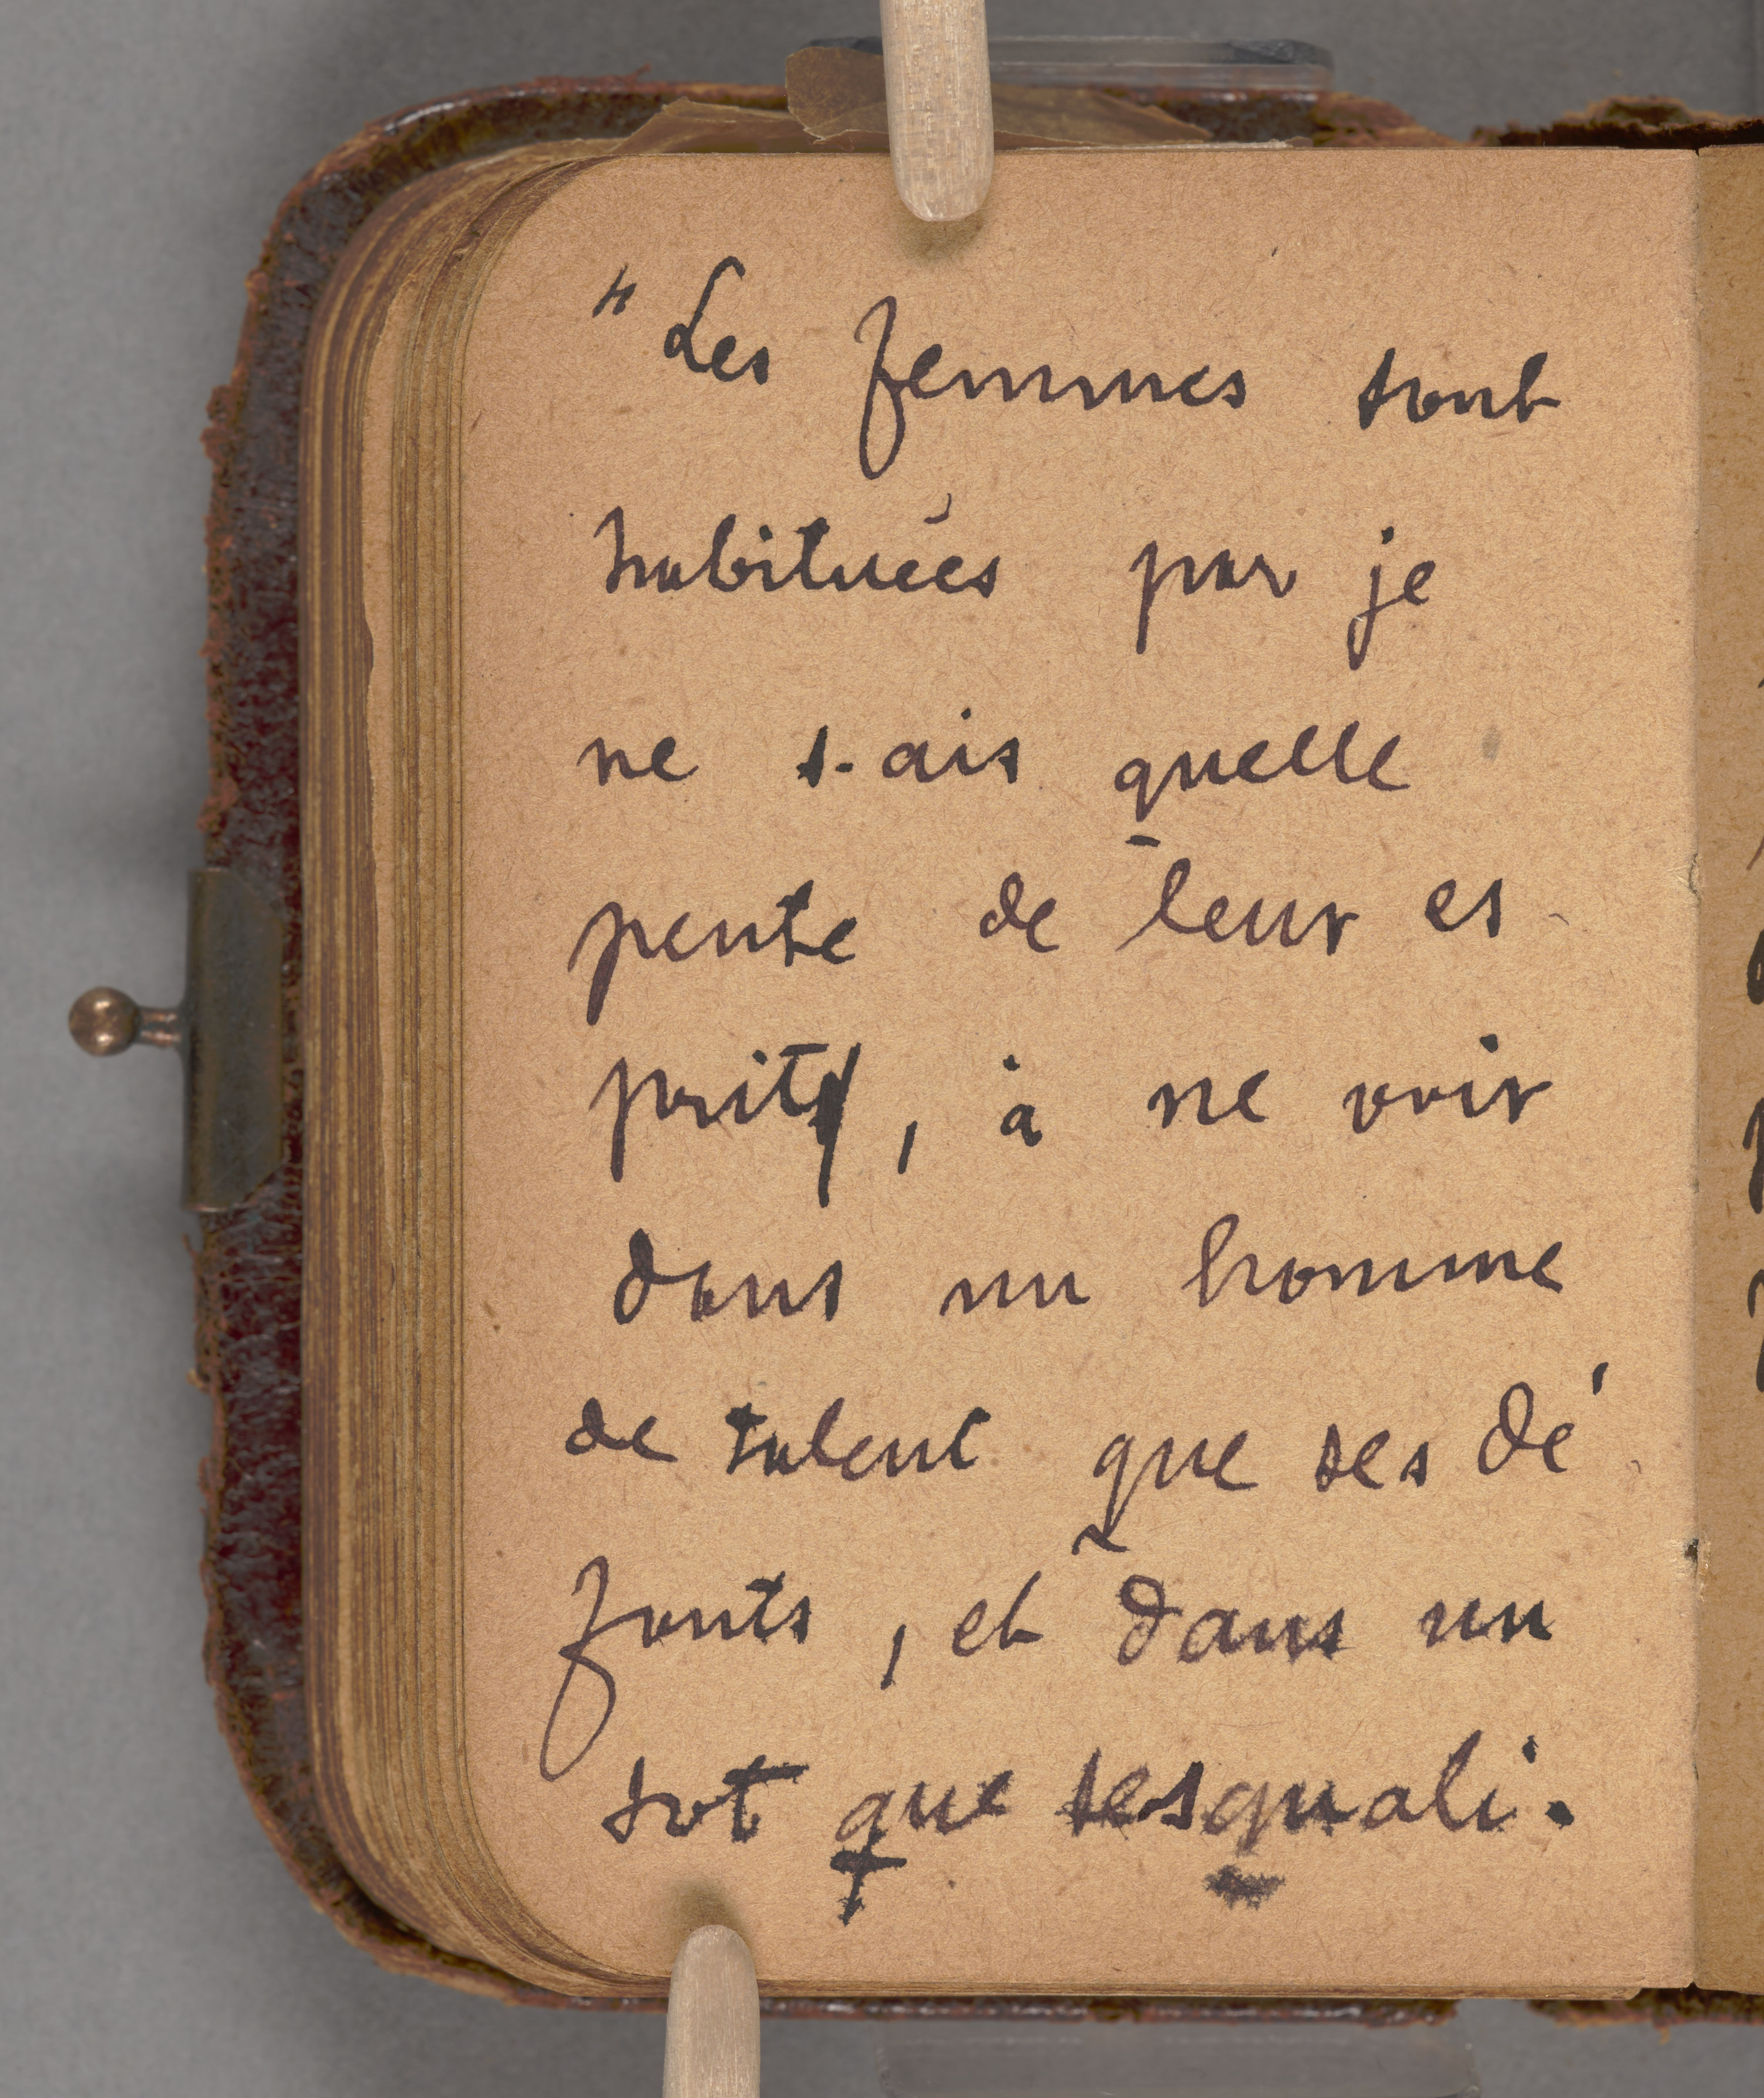 "Les femmes sont
habituées par je
ne sais quelle
pente de leur es-
prit, à ne voir
dans un homme
de talent que ses dé-
fauts, et dans un
sot que ses quali-